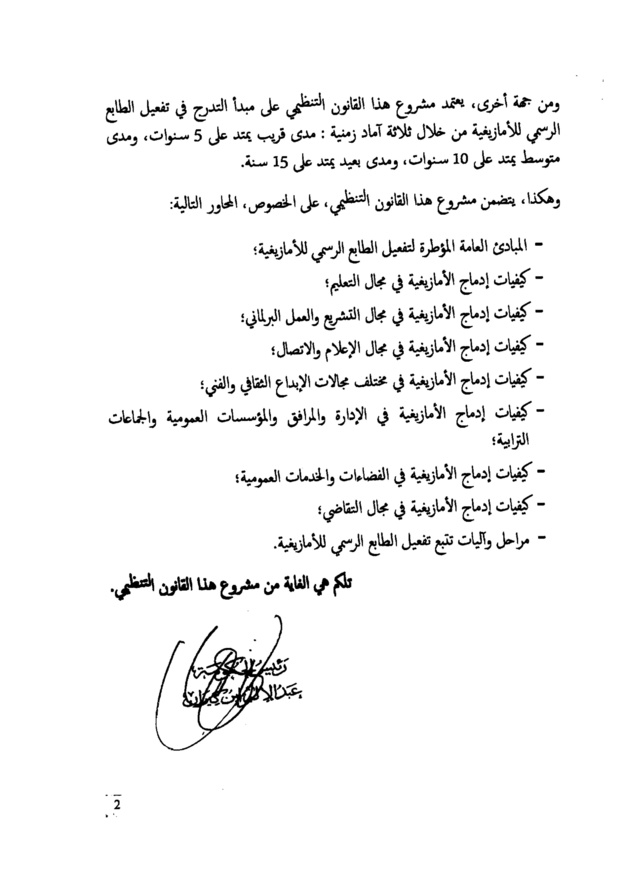 ومن جهة أخرى، يعتمد مشروع هذا القانون التنظيمي على مبدأ التدرج في تفعيل الطابع
الرسمي للأمازيغية من خلال ثلاثة آماد زمنية : مدى قريب يمتد على 5 سنوات، ومدى
متوسط يمتد على 10 سنوات، ومدى بعيد يمتد على 15 سنة.
وهكذا، يتضمن مشروع هذا القانون التنظيمي، على الخصوص، المحاور التالية:
- المبادئ العامة المؤطرة لتفعيل الطابع الرسمي للأمازيغية؛
- كيفيات إدماج الأمازيغية في مجال التعليم؛
- كيفيات إدماج الأمازيغية في مجال التشريع والعمل البرلماني؛
- كيفيات إدماج الأمازيغية في مجال الإعلام والاتصال؛
- كيفيات إدماج الأمازيغية في مختلف مجالات الإبداع الثقافي والفني؛
- كيفيات إدماج الأمازيغية في الإدارة والمرافق والمؤسسات العمومية والجماعات
الترابية؛
- كيفيات إدماج الأمازيغية في الفضاءات والخدمات العمومية؛
- كيفيات إدماج الأمازيغية في مجال التقاضي؛
- مراحل وآليات تتبع تفعيل الطابع الرسمي للأمازيغية.
تلكم هي الغاية من مشروع هذا القانون التنظيمي.
رئيس الحكومة
عبد الإله ابن كيران
2